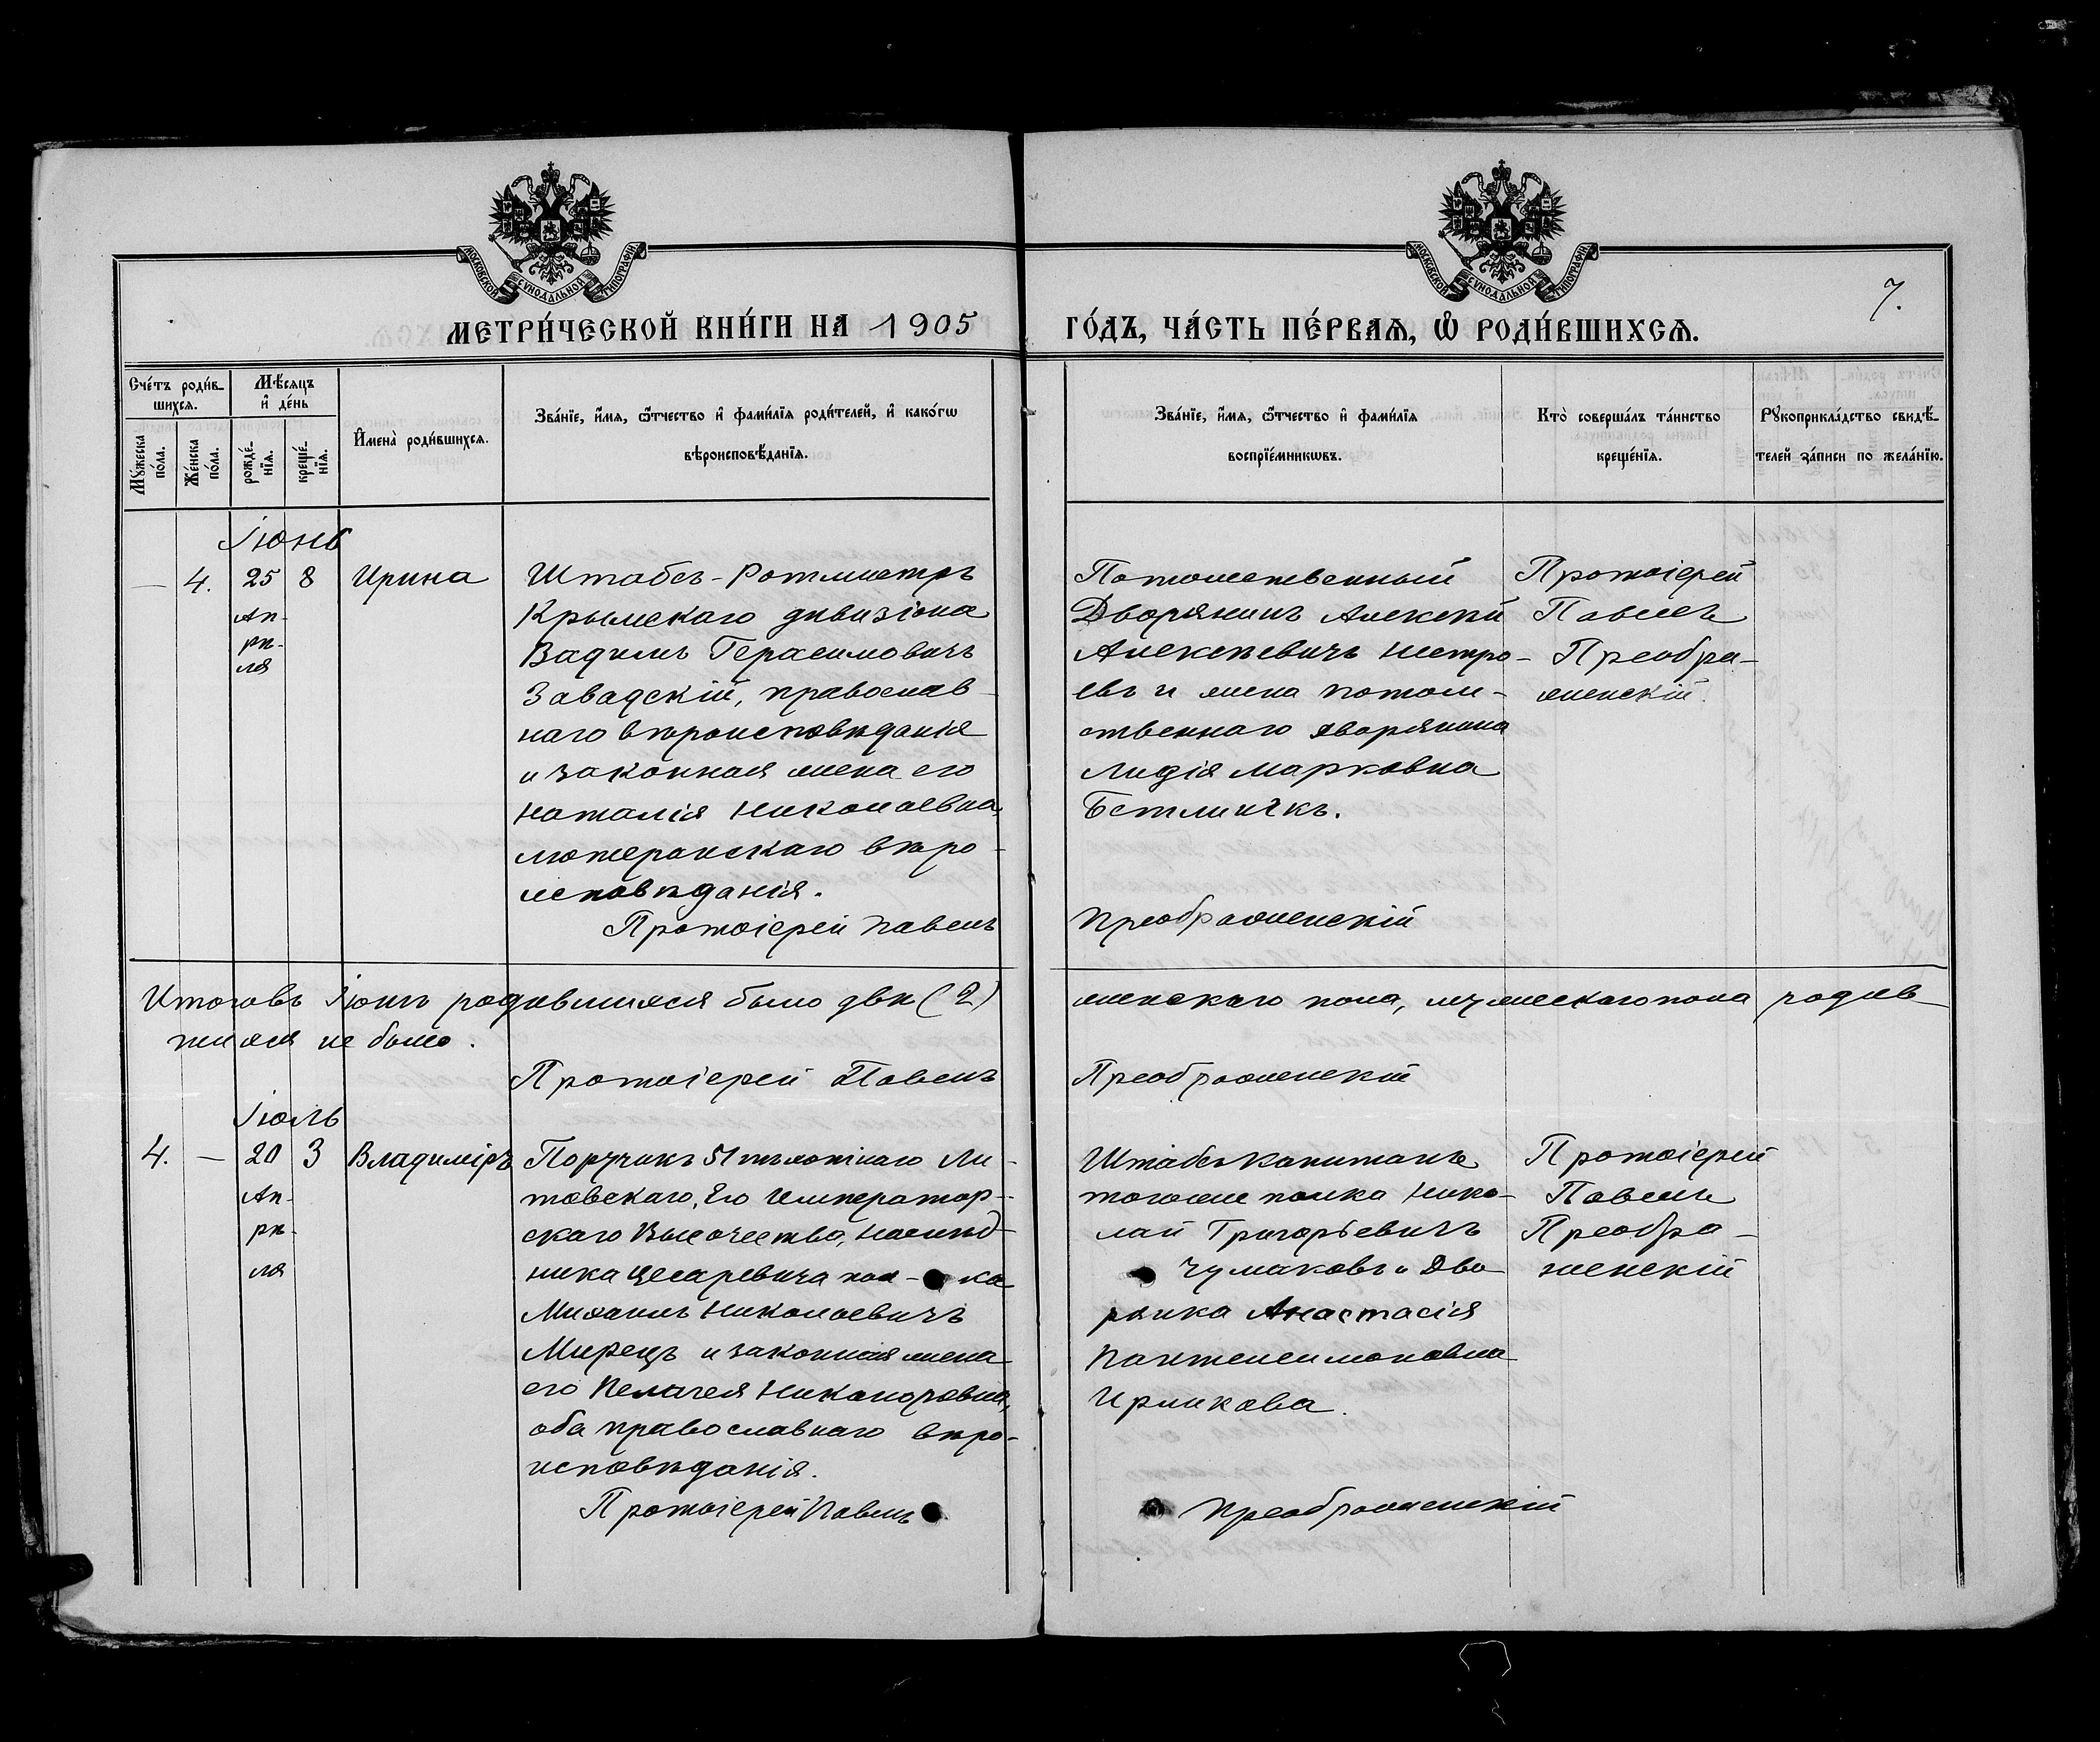 МОСКОВСКОЙ СѴНОДАЛЬНОЙ ТИПОГРАФІИ
МОСКОВСКОЙ СѴНОДАЛЬНОЙ ТИПОГРАФІИ
7.
МЕТРИ́ЧЕСКОЙ КНИ́ГИ НА 1905 ГО́ДЪ, ЧА́СТЬ ПЕ́РВАѦ, Ѡ҆ РОДИ́ВШИХСѦ.
Сче́тъ роди́в-
шихсѧ.
Мꙋ́жеска
по́ла.
Же́нска
по́ла.
Мѣ́сѧцъ
и҆ де́нь
рожде́-
нїѧ.
креще́-
нїѧ.
И҆мена̀ роди́вшихсѧ.
Зва́нїе, и҆́мѧ, ѻ҆́тчество и҆ фами́лїѧ роди́телей, и҆ како́гѡ
вѣроисповѣ́данїѧ.
Зва́нїе, и҆́мѧ, ѻ҆́тчество и҆ фами́лїѧ
воспрїе́мникѡвъ.
Кто̀ соверша́лъ та́инство
креще́нїѧ.
Рꙋкоприкла́дство свидѣ́-
телей за́писи по жела́нїю.
Іюнь
— 4. 25 8
Ап-
рѣ-
ля
Ирина
Штабсъ-Ротмистръ
Крымскаго дивизіона
Вадимъ Герасимовичъ
Завадскій, православ-
наго вѣроисповѣданія
и законная жена его
Наталія Николаевна,
лютеранскаго вѣро-
исповѣданія.
Протоіерей Павелъ
Потомственный
Дворянинъ Алексѣй
Алексѣевичъ Нестро-
евъ и жена потом-
ственнаго дворянина
Лидія Марковна
Бетлингкъ.
Преображенскій
Протоіерей
Павелъ
Преобра-
женскій.
Итого въ Іюнѣ родившихся было двѣ (2) женскаго пола, мужескаго пола родив-
шихся не было.
Протоіерей Павелъ Преображенскій
Іюль
4. — 20 3
Ап-
рѣ-
ля
Владиміръ
Поручикъ 51 пѣхотнаго Ли-
товскаго, Его Император-
скаго Высочества, Наслѣд-
ника Цесаревича пол-ка
Михаилъ Николаевичъ
Мирецъ и законная жена
его Пелагея Никаноровна,
оба православнаго вѣро-
исповѣданія.
Протоіерей Павелъ
Штабсъ Капитанъ
тогоже полка Нико-
лай Григорьевичъ
Чумаковъ и Дво-
рянка Анастасія
Пантелеимоновна
Преображенскій
Протоіерей
Павелъ
Преобра-
женскій